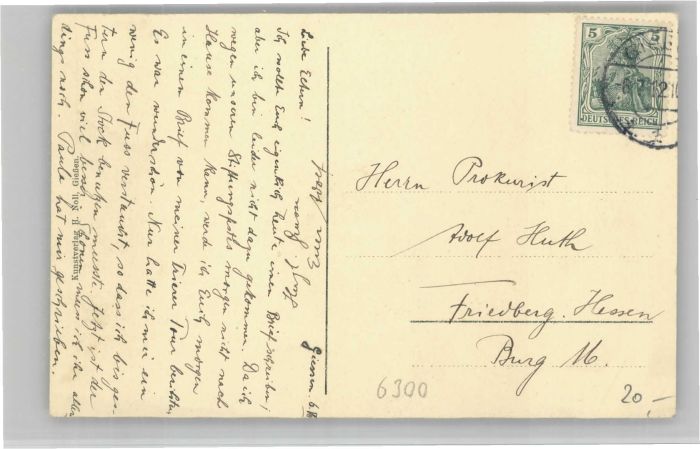 Giessen. 6.
Liebe Eltern!
Ich wollt Euch eigentlich heute einen Brief schreiben;
aber ich bin leider nicht dazu gekommen. Da ich
wegen unseres Stiftungsfestes morgen nicht nach
Hause kommen kann, werd ich Euch morgen
in einem Brief von meiner Trierer Tour berichten.
Es war wunderschön. Nur hatte ich mir ein
wenig den Fuss verstaucht, so dass ich bis ges-
tern den Stock benutzen musste. Jetzt ist der
Fuss schon viel besser, schonen muss ich ihn aller
dings noch. Paula hat mir geschrieben.
Kunstverlag
Gießen.
5 5
DEUTSCHES REICH
Herrn Prokurist
Adolf Huth
Friedberg. Hessen
Burg
6300
20,-